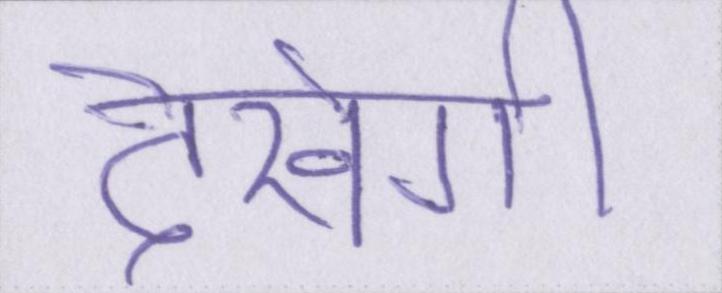 देखेगी